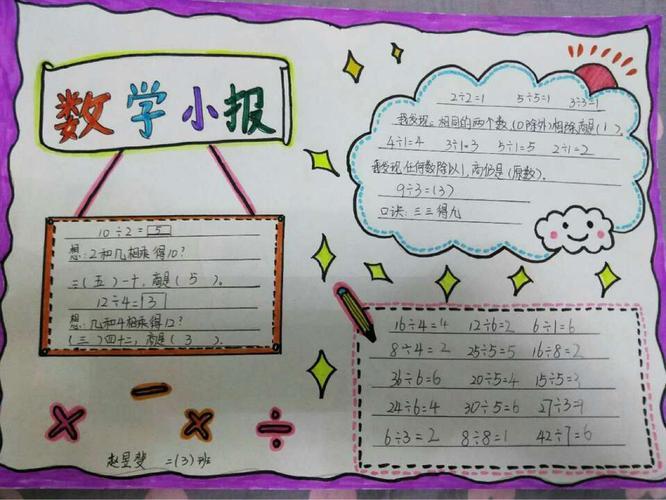 数学小报
10÷2=5
想:2和几相乘得10?
二(五)一十,商是(5)。
12÷4=3
想:几和4相乘得12?
(三)四十二,商是(3)。
2÷2=1 5÷5=1 3÷3=1
我发现:相同的两个数,(0除外)相除,商是(1)。
4÷1=4 3÷1=3 5÷1=5 2÷1=2
我发现任何数除以1,商仍是(原数)。
9÷3=(3)
口诀:三三得九
16÷4=4 12÷6=2 6÷1=6
8÷4=2 25÷5=5 16÷8=2
36÷6=6 20÷5=4 15÷5=3
24÷6=4 30÷5=6 27÷3=9
6÷3=2 8÷8=1 42÷7=6
× − × ÷
赵昱斐 二(3)班